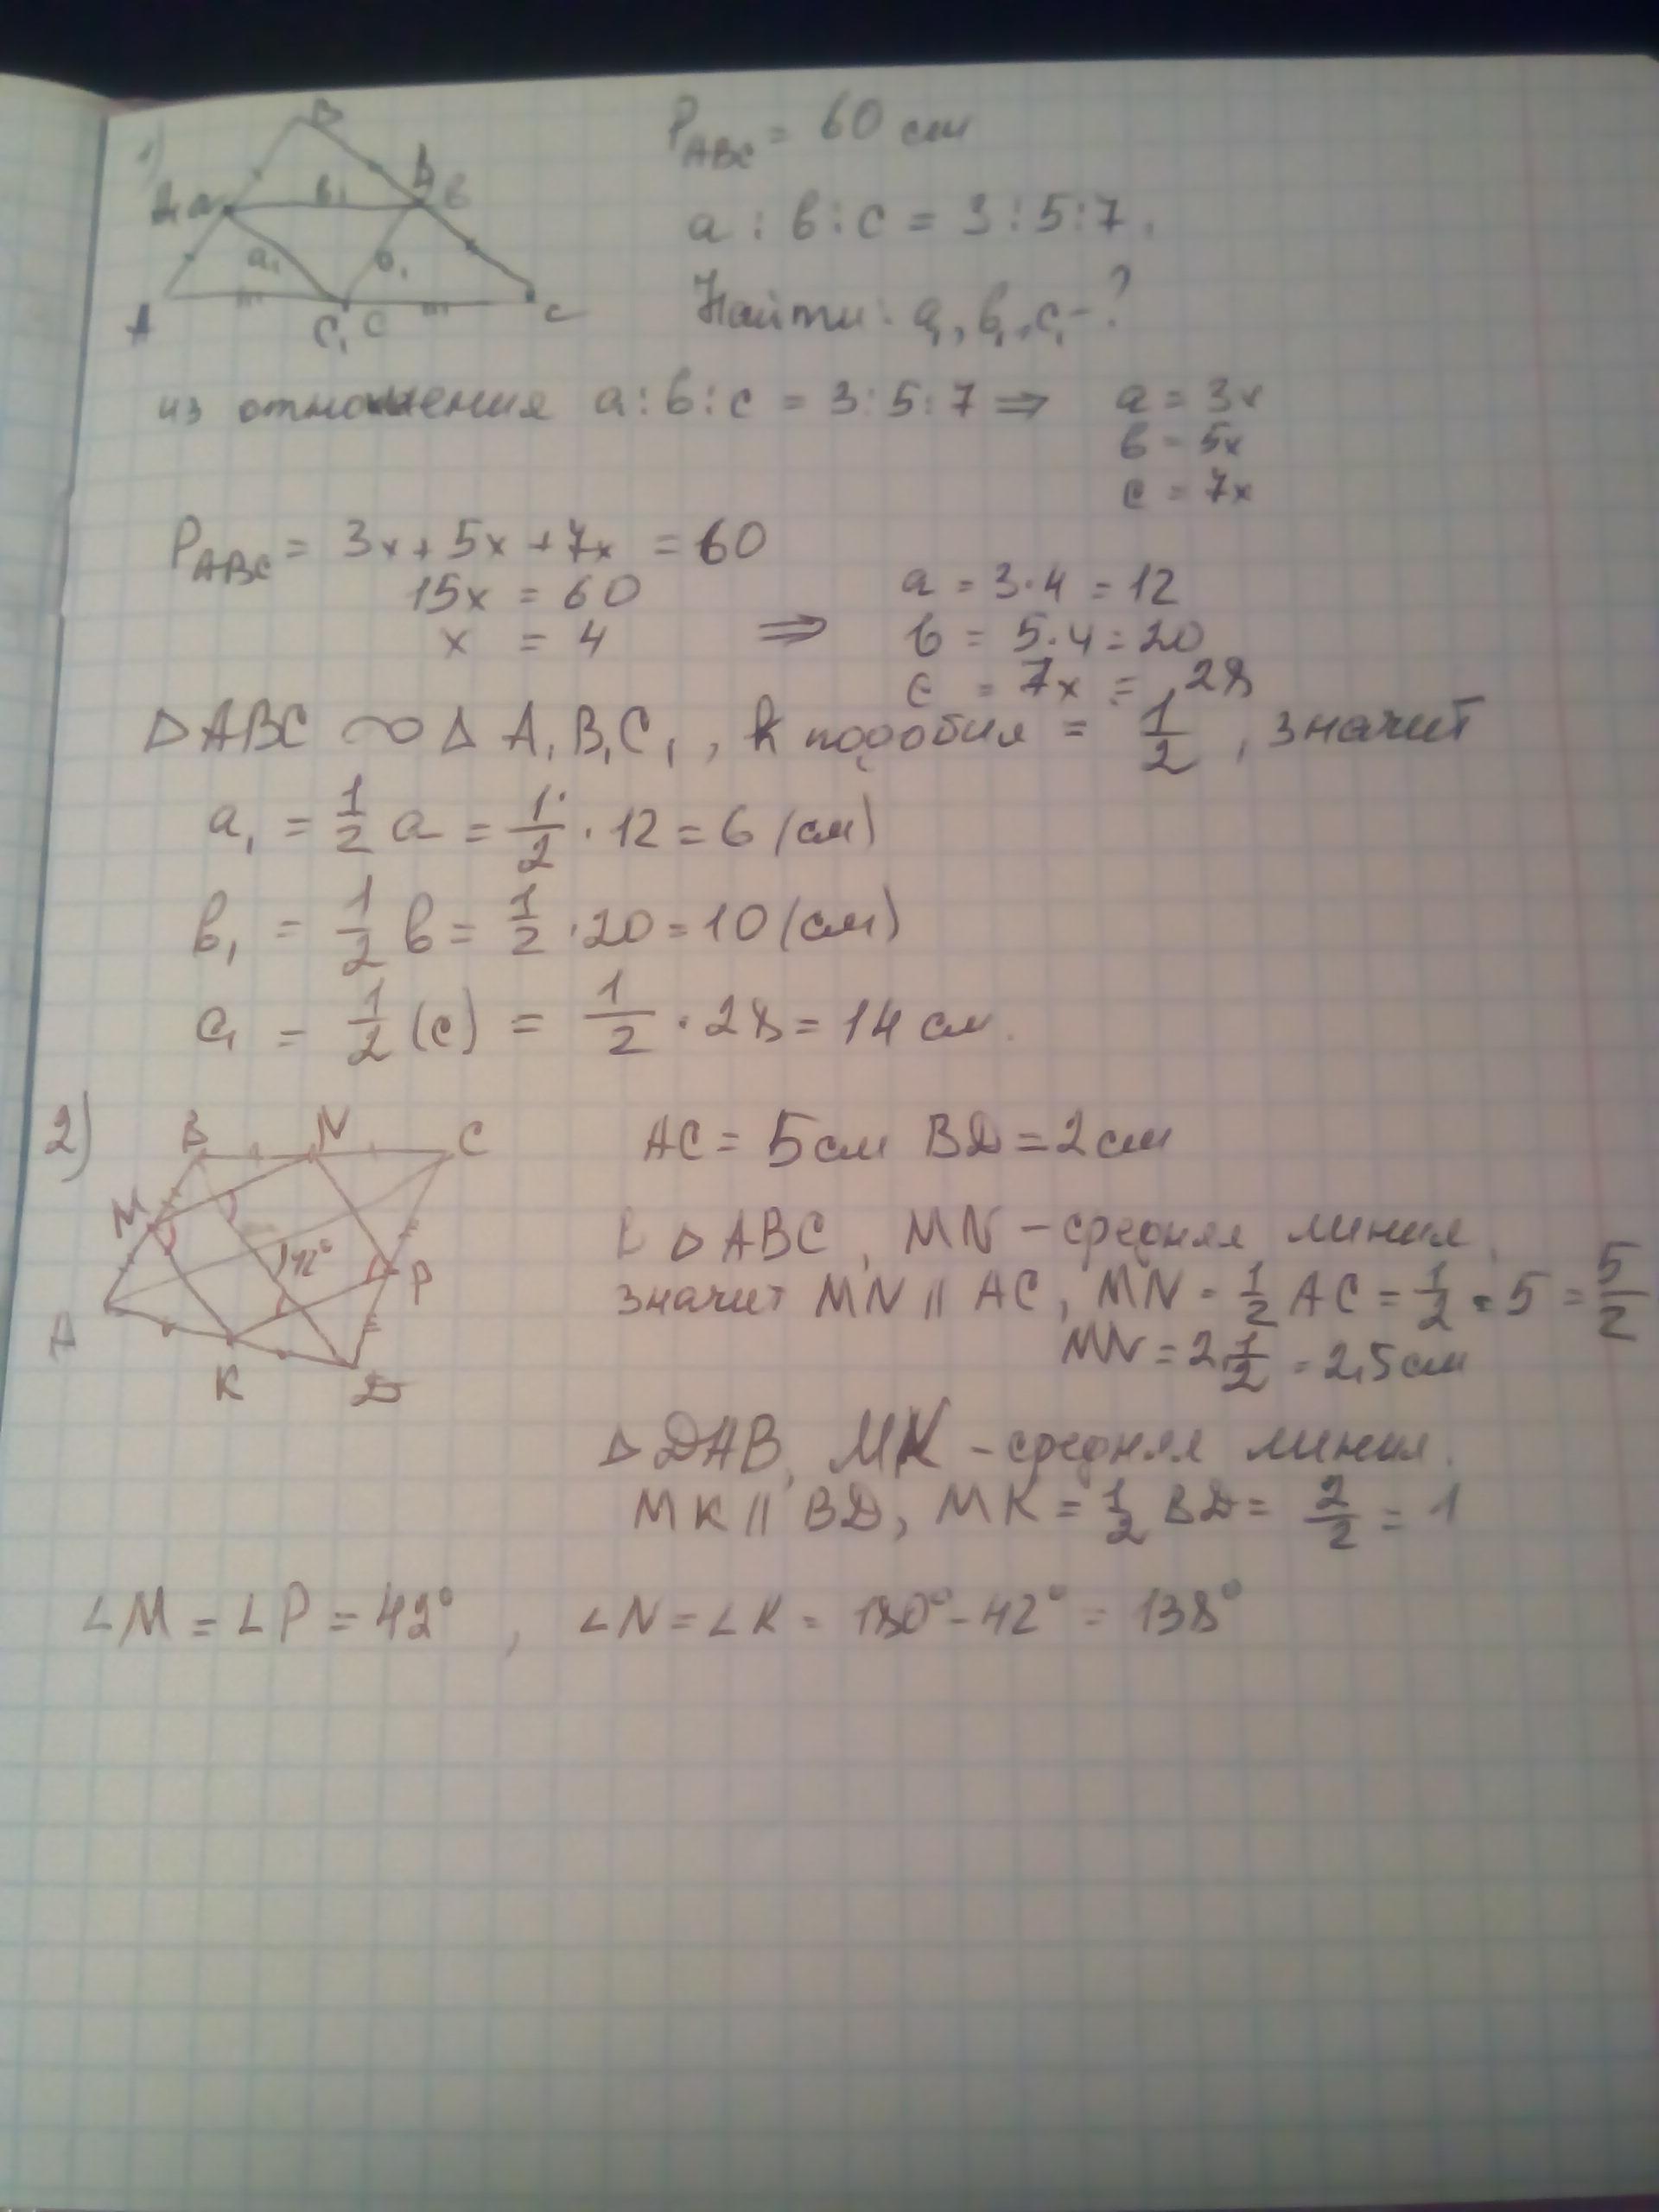 1)
B
A₁ a
b₁
B₁ в
a₁
c₁
A
C₁ C
C
P_ABC = 60 см
a : в : c = 3 : 5 : 7.
Найти: a₁, в₁, c₁ - ?
из отношения a : в : c = 3 : 5 : 7 ⇒ a = 3x
в = 5x
c = 7x
P_ABC = 3x + 5x + 7x = 60
15x = 60
x = 4 ⇒
a = 3·4 = 12
в = 5·4 = 20
c = 7x = 28
△ABC ∾ △A₁B₁C₁, k подобия = 1/2, значит
a₁ = 1/2 a = 1/2 · 12 = 6 (см)
в₁ = 1/2 в = 1/2 · 20 = 10 (см)
c₁ = 1/2 (c) = 1/2 · 28 = 14 см.
2)
B N C
M
42°
P
A
K
D
AC = 5 см BD = 2 см
В △ABC, MN – средняя линия,
значит MN || AC, MN = 1/2 AC = 1/2 · 5 = 5/2
MN = 2 1/2 = 2,5 см
△DAB, MK – средняя линия.
MK || BD, MK = 1/2 BD = 2/2 = 1
∠M = ∠P = 42°, ∠N = ∠K = 180° - 42° = 138°